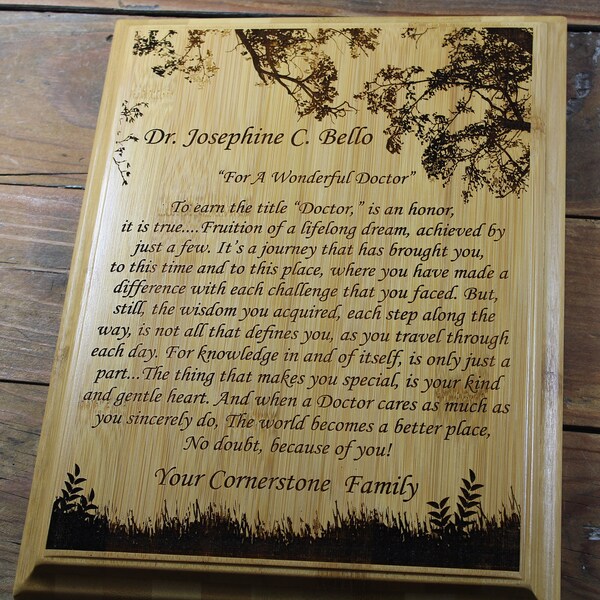 Dr. Josephine C. Bello
“For A Wonderful Doctor”
To earn the title “Doctor,” is an honor,
it is true....Fruition of a lifelong dream, achieved by
just a few. It’s a journey that has brought you,
to this time and to this place, where you have made a
difference with each challenge that you faced. But,
still, the wisdom you acquired, each step along the
way, is not all that defines you, as you travel through
each day. For knowledge in and of itself, is only just a
part...The thing that makes you special, is your kind
and gentle heart. And when a Doctor cares as much as
you sincerely do, The world becomes a better place,
No doubt, because of you!
Your Cornerstone Family